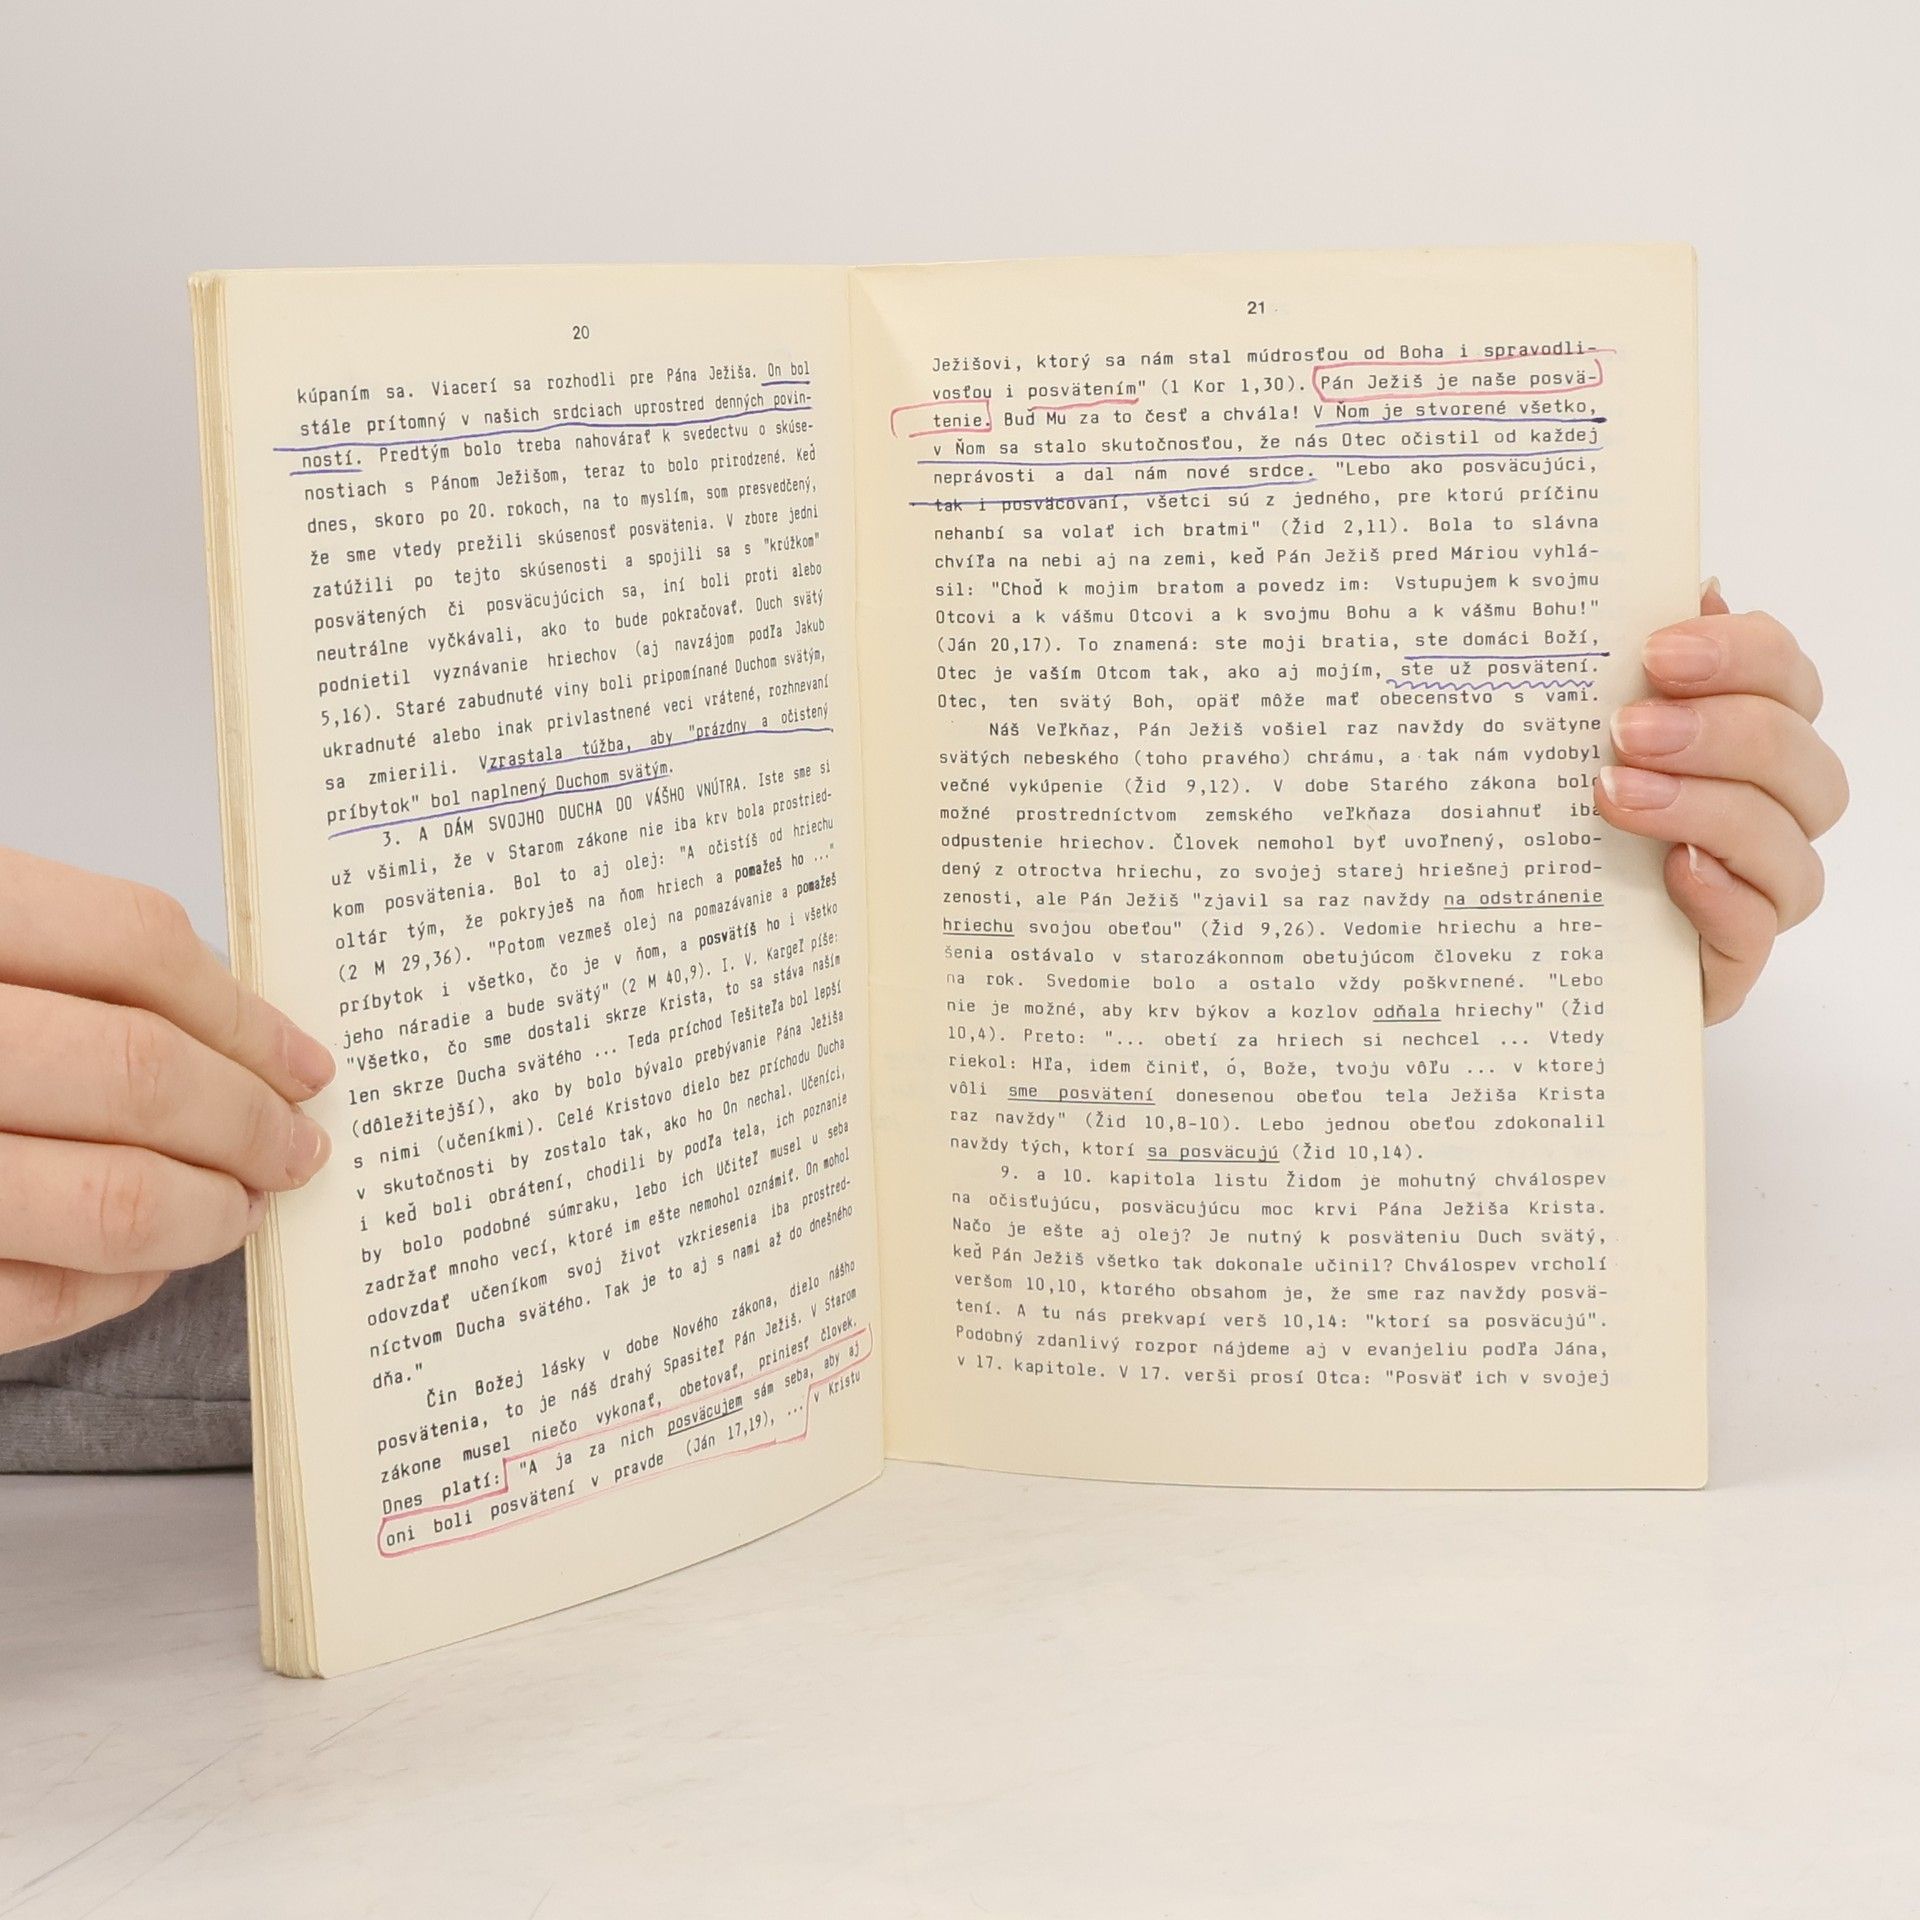 20
kúpaním sa. Viacerí sa rozhodli pre Pána Ježiša. On bol
stále prítomný v našich srdciach uprostred denných povin-
ností. Predtým bolo treba nahovárať k svedectvu o skúse-
nostiach s Pánom Ježišom, teraz to bolo prirodzené. Keď
dnes, skoro po 20. rokoch, na to myslím, som presvedčený,
že sme vtedy prežili skúsenosť posvätenia. V zbore jedni
zatúžili po tejto skúsenosti a spojili sa s "krúžkom"
posvätených či posväcujúcich sa, iní boli proti alebo
neutrálne vyčkávali, ako to bude pokračovať. Duch svätý
podnietil vyznávanie hriechov (aj navzájom podľa Jakub
5,16). Staré zabudnuté viny boli pripomínané Duchom svätým,
ukradnuté alebo inak privlastnené veci vrátené, rozhnevaní
sa zmierili. Vzrastala túžba, aby "prázdny a očistený
príbytok" bol naplnený Duchom svätým.
3. A DÁM SVOJHO DUCHA DO VÁŠHO VNÚTRA. Iste sme si
už všimli, že v Starom zákone nie iba krv bola prostried-
kom posvätenia. Bol to aj olej: "A očistíš od hriechu
oltár tým, že pokryješ na ňom hriech a pomažeš ho ..."
(2 M 29,36). "Potom vezmeš olej na pomazávanie a pomažeš
príbytok i všetko, čo je v ňom, a posvätíš ho i všetko
jeho náradie a bude svätý" (2 M 40,9). I. V. Kargeľ píše:
"Všetko, čo sme dostali skrze Krista, to sa stáva naším
len skrze Ducha svätého ... Teda príchod Tešiteľa bol lepší
(dôležitejší), ako by bolo bývalo prebývanie Pána Ježiša
s nimi (učeníkmi). Celé Kristovo dielo bez príchodu Ducha
v skutočnosti by zostalo tak, ako ho On nechal. Učeníci,
i keď boli obrátení, chodili by podľa tela, ich poznanie
by bolo podobné súmraku, lebo ich Učiteľ musel u seba
zadržať mnoho vecí, ktoré im ešte nemohol oznámiť. On mohol
odovzdať učeníkom svoj život vzkriesenia iba prostred-
níctvom Ducha svätého. Tak je to aj s nami až do dnešného
dňa."
Čin Božej lásky v dobe Nového zákona, dielo nášho
posvätenia, to je náš drahý Spasiteľ Pán Ježiš. V Starom
zákone musel niečo vykonať, obetovať, priniesť človek.
Dnes platí: "A ja za nich posväcujem sám seba, aby aj
oni boli posvätení v pravde (Ján 17,19), ... v Kristu
21
Ježišovi, ktorý sa nám stal múdrosťou od Boha i spravodli-
vosťou i posvätením" (1 Kor 1,30). Pán Ježiš je naše posvä-
tenie. Buď Mu za to česť a chvála! V Ňom je stvorené všetko,
v Ňom sa stalo skutočnosťou, že nás Otec očistil od každej
neprávosti a dal nám nové srdce. "Lebo ako posväcujúci,
tak i posväcovaní, všetci sú z jedného, pre ktorú príčinu
nehanbí sa volať ich bratmi" (Žid 2,11). Bola to slávna
chvíľa na nebi aj na zemi, keď Pán Ježiš pred Máriou vyhlá-
sil: "Choď k mojim bratom a povedz im: Vstupujem k svojmu
Otcovi a k vášmu Otcovi a k svojmu Bohu a k vášmu Bohu!"
(Ján 20,17). To znamená: ste moji bratia, ste domáci Boží,
Otec je vaším Otcom tak, ako aj mojím, ste už posvätení.
Otec, ten svätý Boh, opäť môže mať obecenstvo s vami.
Náš Veľkňaz, Pán Ježiš vošiel raz navždy do svätyne
svätých nebeského (toho pravého) chrámu, a tak nám vydobyl
večné vykúpenie (Žid 9,12). V dobe Starého zákona bolo
možné prostredníctvom zemského veľkňaza dosiahnuť iba
odpustenie hriechov. Človek nemohol byť uvoľnený, oslobo-
dený z otroctva hriechu, zo svojej starej hriešnej prirod-
zenosti, ale Pán Ježiš "zjavil sa raz navždy na odstránenie
hriechu svojou obeťou" (Žid 9,26). Vedomie hriechu a hre-
šenia ostávalo v starozákonnom obetujúcom človeku z roka
na rok. Svedomie bolo a ostalo vždy poškvrnené. "Lebo
nie je možné, aby krv býkov a kozlov odňala hriechy" (Žid
10,4). Preto: "... obetí za hriech si nechcel ... Vtedy
riekol: Hľa, idem činiť, ó, Bože, tvoju vôľu ... v ktorej
vôli sme posvätení donesenou obeťou tela Ježiša Krista
raz navždy" (Žid 10,8-10). Lebo jednou obeťou zdokonalil
navždy tých, ktorí sa posväcujú (Žid 10,14).
9. a 10. kapitola listu Židom je mohutný chválospev
na očisťujúcu, posväcujúcu moc krvi Pána Ježiša Krista.
Načo je ešte aj olej? Je nutný k posväteniu Duch svätý,
keď Pán Ježiš všetko tak dokonale učinil? Chválospev vrcholí
veršom 10,10, ktorého obsahom je, že sme raz navždy posvä-
tení. A tu nás prekvapí verš 10,14: "ktorí sa posväcujú".
Podobný zdanlivý rozpor nájdeme aj v evanjeliu podľa Jána,
v 17. kapitole. V 17. verši prosí Otca: "Posväť ich v svojej